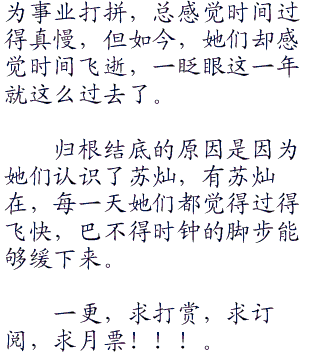 为事业打拼，总感觉时间过
得真慢，但如今，她们却感
觉时间飞逝，一眨眼这一年
就这么过去了。
归根结底的原因是因为
她们认识了苏灿，有苏灿
在，每一天她们都觉得过得
飞快，巴不得时钟的脚步能
够缓下来。
一更，求打赏，求订
阅，求月票！！！。